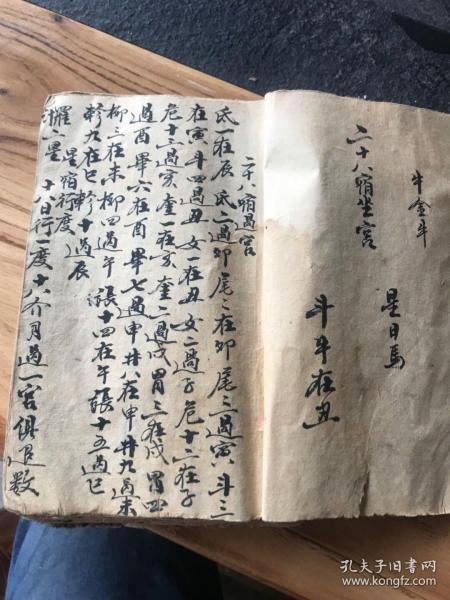 牛金牛
二十八宿坐宮
星日馬
斗牛在丑
二十八宿過宮
氐一在辰氐二過卯尾二在卯尾三過寅斗三
在寅斗四過丑女一在丑女二過子危十二在子
危十三過亥奎一在亥奎二過戌胃三在戌胃四
過酉畢六在酉畢七過申井八在申井九過未
柳三在未柳四過午張十四在午張十五過巳
軫九在巳軫十過辰
星宿行度
羅計二星十八日行一度十八个月過一宮俱退数
孔夫子旧书网
www.kongfz.com